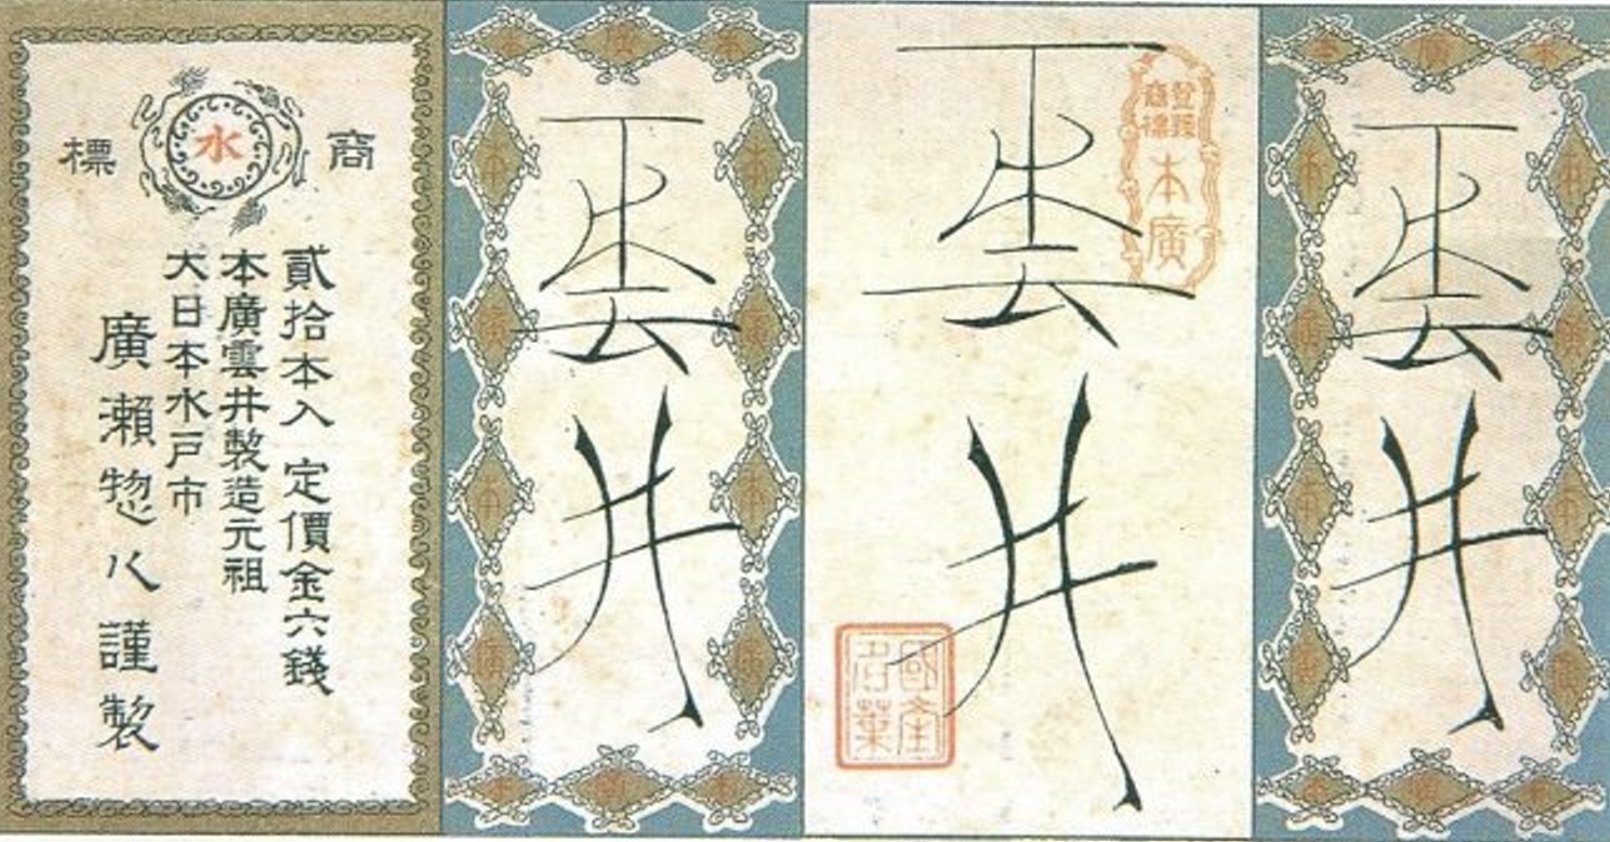 雲井
登録
商標
本廣
雲井
國產
名葉
雲井
商標
水
貳拾本入 定價金六錢
本廣雲井製造元祖
大日本水戸市
廣瀨惣八謹製